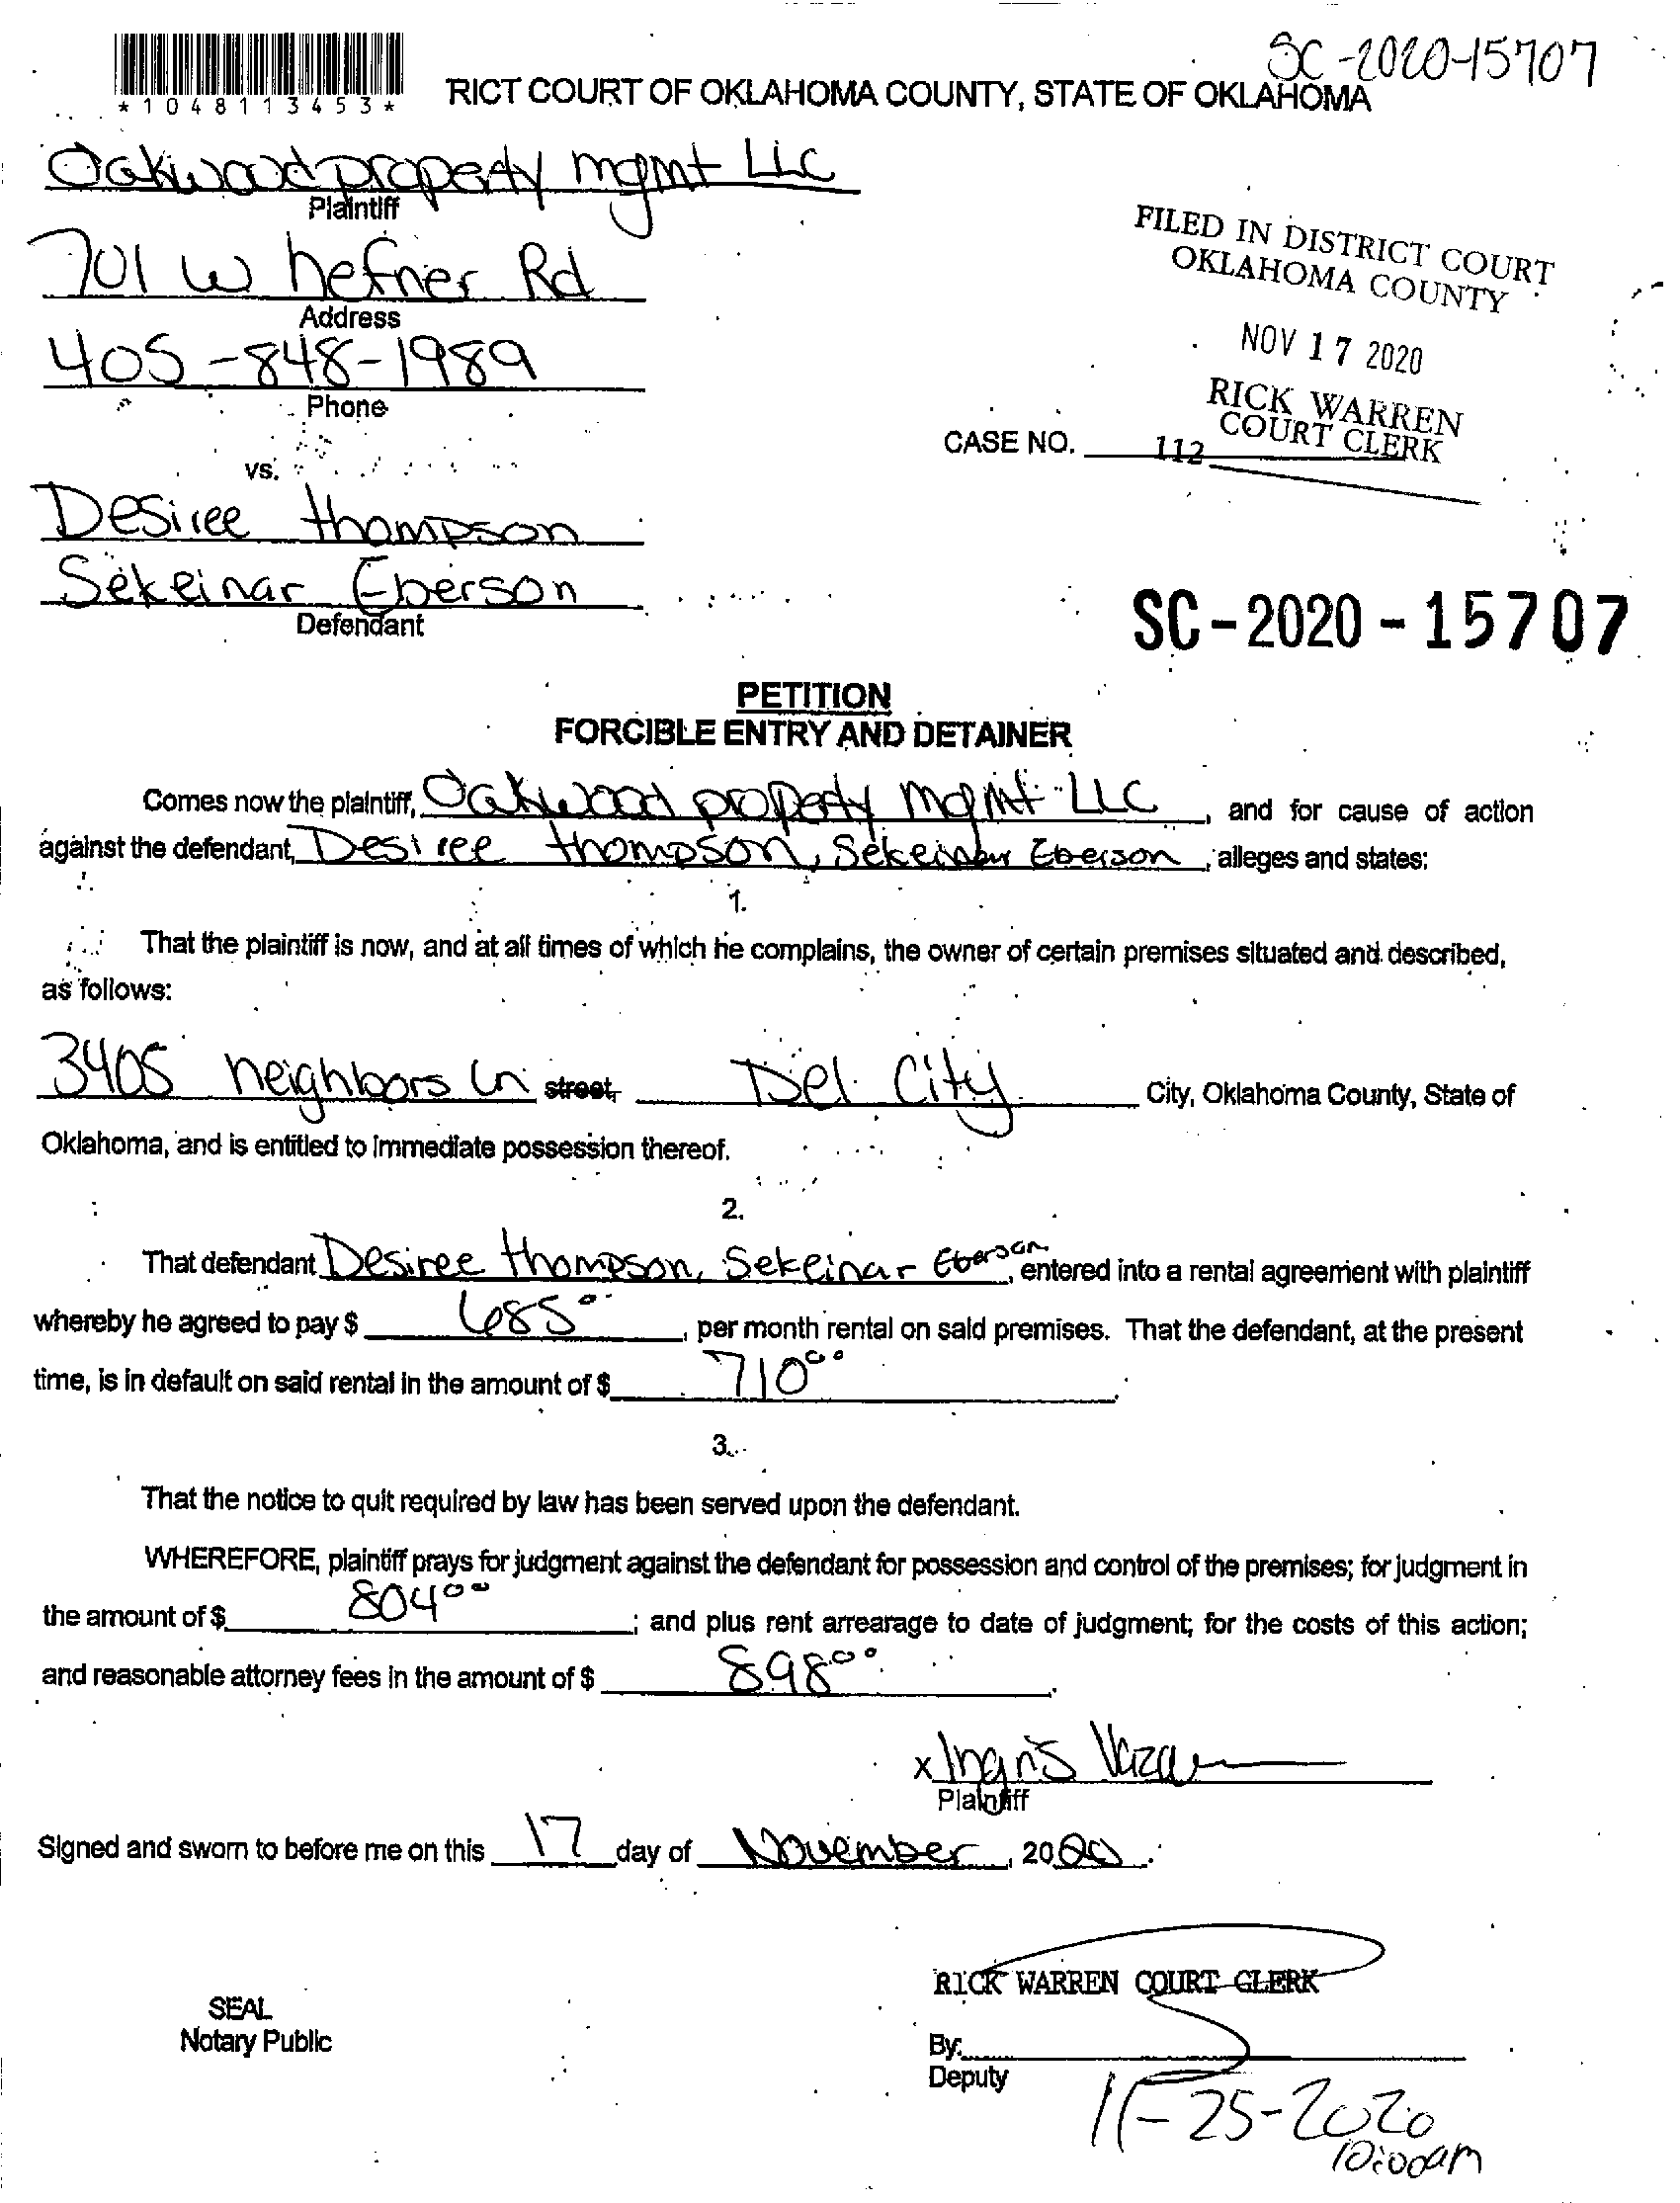 SC-2020-15707
*1048113453*
RICT COURT OF OKLAHOMA COUNTY, STATE OF OKLAHOMA
Oakwood property mgmt LLC
Plaintiff
701 W hefner Rd
Address
405-848-1989
Phone
FILED IN DISTRICT COURT
OKLAHOMA COUNTY
NOV 17 2020
RICK WARREN
COURT CLERK
CASE NO. 112
vs.
Desiree thompson
Sekeinar Eberson
Defendant
SC-2020-15707
PETITION
FORCIBLE ENTRY AND DETAINER
Comes now the plaintiff, Oakwood property mgmt LLC, and for cause of action
against the defendant, Desiree thompson, Sekeinar Eberson, alleges and states:
1.
That the plaintiff is now, and at all times of which he complains, the owner of certain premises situated and described,
as follows:
3405 neighbors Ln street, Del City City, Oklahoma County, State of
Oklahoma, and is entitled to immediate possession thereof.
2.
That defendant Desiree thompson, Sekeinar Eberson, entered into a rental agreement with plaintiff
whereby he agreed to pay $ 685.00, per month rental on said premises. That the defendant, at the present
time, is in default on said rental in the amount of $ 710.00.
3.
That the notice to quit required by law has been served upon the defendant.
WHEREFORE, plaintiff prays for judgment against the defendant for possession and control of the premises; for judgment in
the amount of $ 804.00; and plus rent arrearage to date of judgment; for the costs of this action;
and reasonable attorney fees in the amount of $ 898.00.
x
Plaintiff
Signed and sworn to before me on this 17 day of November, 2020.
RICK WARREN COURT CLERK
SEAL
Notary Public
By:
Deputy
11-25-2020
10:00am